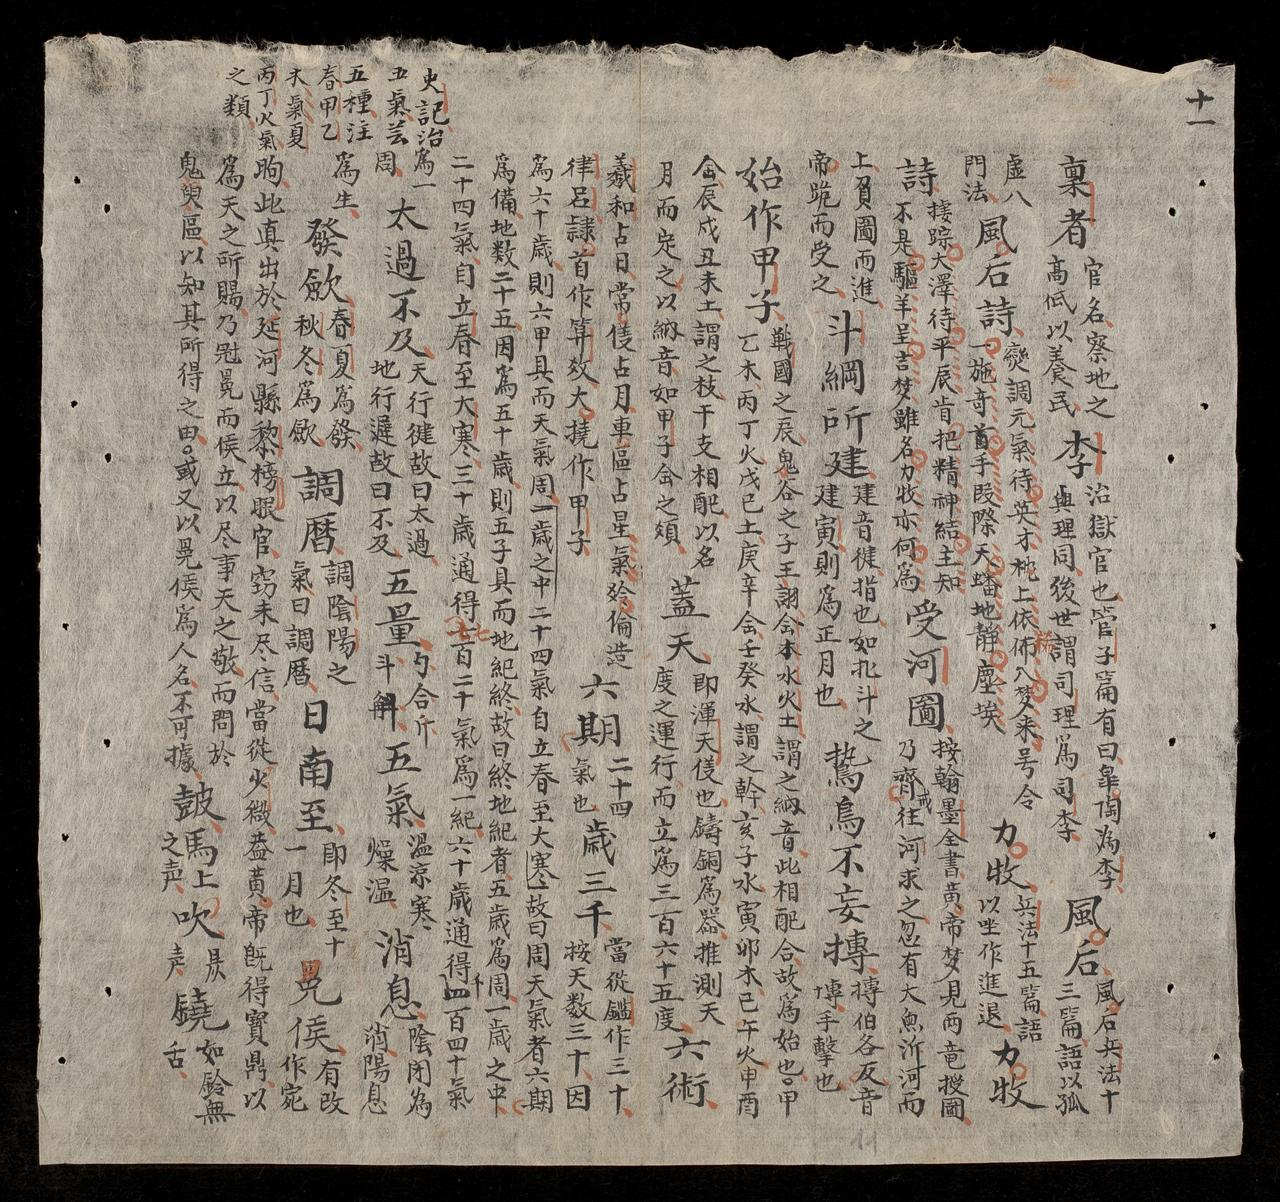 十一
稟者官名察地之
高低以養民李治獄官也管子篇有曰皐陶為李
與理同後世謂司理爲司李風后風后兵法十
三篇語以孤
虛八
門法風后詩變調元氣待英才枕上依俙入梦来号令
一施奇首手段際天蟠地靜塵埃力牧兵法十五篇語
以㘴作進退力牧
詩接踪大澤待平辰肯把精神結主知
不是驅羊呈吉梦雖名力牧亦何爲受河圖按翰墨全書黃帝梦見两竜授圖
乃齊戒往河求之忽有大魚泝河而
上負圖而進
帝跪而受之斗綱所建建音徤指也如北斗之
建寅則爲正月也鷙鳥不妄摶摶伯各反音
博手擊也
始作甲子戰國之辰鬼谷之子王詡金木水火土謂之納音此相配合故爲始也甲
乙木丙丁火戊巳土庚辛金壬癸水謂之幹亥子水寅卯木巳午火申酉
金辰戍丑未土謂之枝干支相配以名
月而定之以納音如甲子金之類蓋天即渾天儀也鑄銅爲器推測天
度之運行而立爲三百六十五度六術
羲和占日常儀占月車區占星氣伶倫造
律呂隸首作算数大撓作甲子六期二十四
氣也歲三千當從鑑作三十
按天数三十因
爲六十歲則六甲具而天氣周一歲之中二十四氣自立春至大寒故曰周天氣者六期
爲備地数二十五因爲五十歲則五子具而地紀終故曰終地紀者五歲爲周一歲之中
二十四氣自立春至大寒三十歲通得七百二十氣爲一紀六十歲通得千四百四十氣
爲一
周太過不及天行徤故曰太過
地行遲故曰不及五量勺合斤
斗斛五氣溫凉寒
燥温消息陰閉為
消陽息
史記治
五氣芸
五種注
春甲乙
木氣夏
丙丁火氣
之類
爲生發歛春夏爲發
秋冬爲歛調暦調陰陽之
氣曰調暦日南至即冬至十
一月也冕侯有改
作宛
朐此真出於延河縣黎榜眼官窃未尽信當從少微葢黃帝既得寶鼎以
爲天之所賜乃冠冕而侯立以尽事天之敬而問於
鬼臾區以知其所得之由或又以冕侯爲人名不可據鼓馬上
之声吹晨
声鐃如鈴無
舌